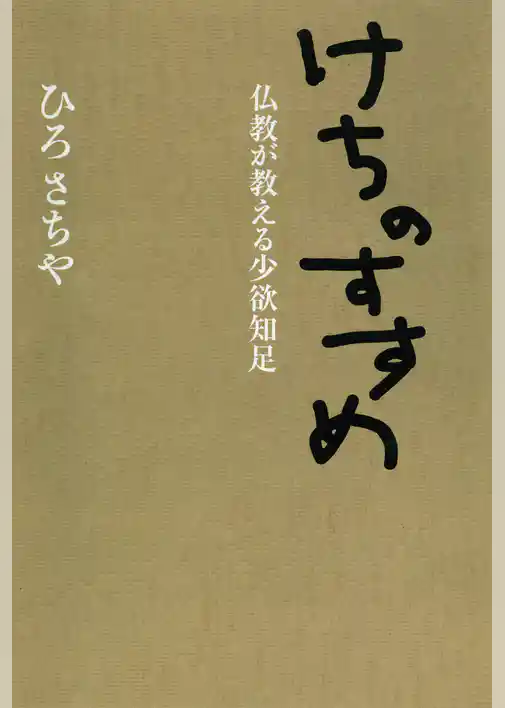 けちのすすめ
仏教が教える少欲知足
ひろさちや